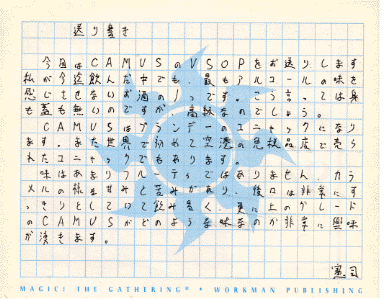 送り書き
今回はCAMUSのVSOPをお送りします
私が今迄飲んだ中でも、最もアルコールの味を
感じさせないお酒の1つです。こう言っては身
も蓋も無いのですが、高級なのでしょう。
CAMUSはブランデーのコニャックになり
ます。また世界で初めて空港の免税品店で売ら
れたコニャックでもあります。
味はあまりフルーティではありません。カラ
メルの様な甘みと苦みがあり、後口は非常にす
っきりとしていて飲み易く、更に上のグレード
のCAMUSがどのような味なのか非常に興味
が湧きます。
憲司
MAGIC: THE GATHERING® • WORKMAN PUBLISHING